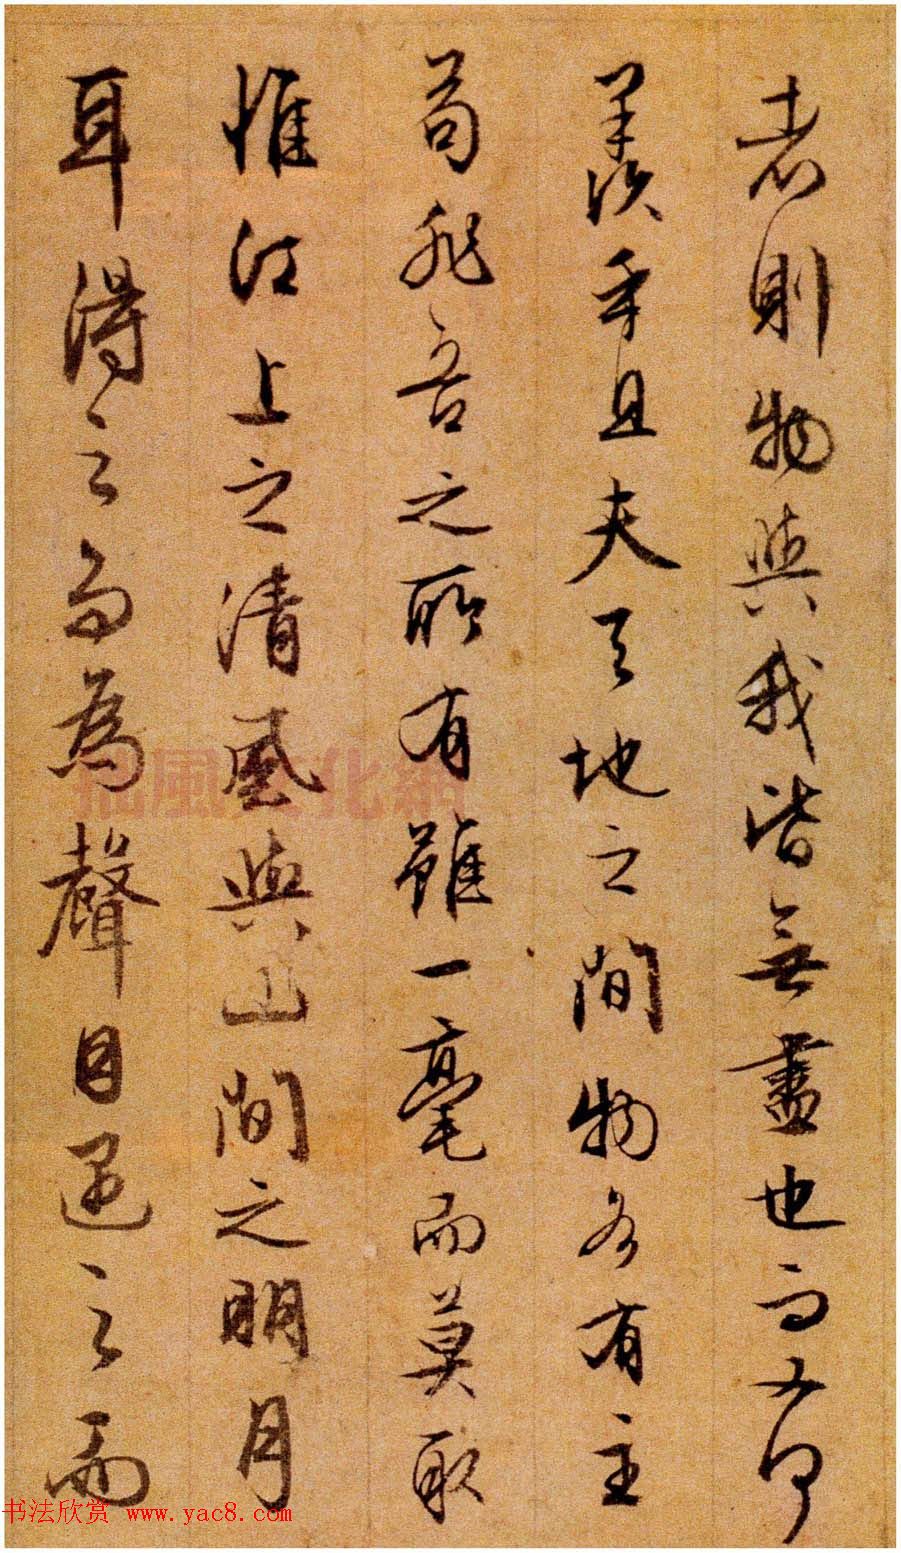 者則物與我皆無盡也而又何
羨乎且夫天地之間物各有主
苟非吾之所有雖一毫而莫取
惟江上之清風與山間之明月
耳得之而為聲目遇之而
拙風文化網
书法欣赏 www.yac8.com